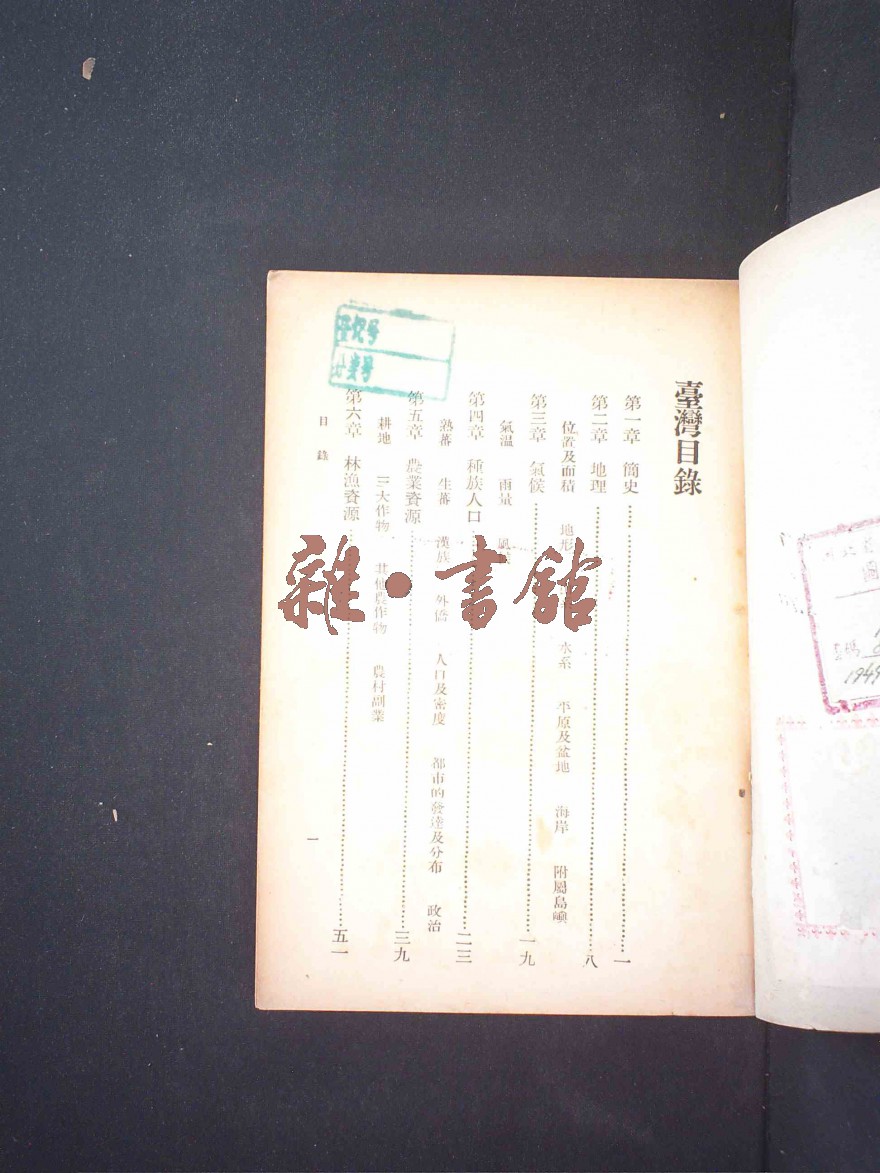 臺灣目錄
第一章 簡史……一
第二章 地理……八
位置及面積 地形 水系 平原及盆地 海岸 附屬島嶼
第三章 氣候……一九
氣溫 雨量
第四章 種族人口……二三
熟蕃 生蕃 漢族 外僑 人口及密度 都市的發達及分布 政治
第五章 農業資源……三九
耕地 三大作物 其他農作物 農村副業
第六章 林漁資源……五一
目錄
一
登記号
分类号
雜·書館
1949